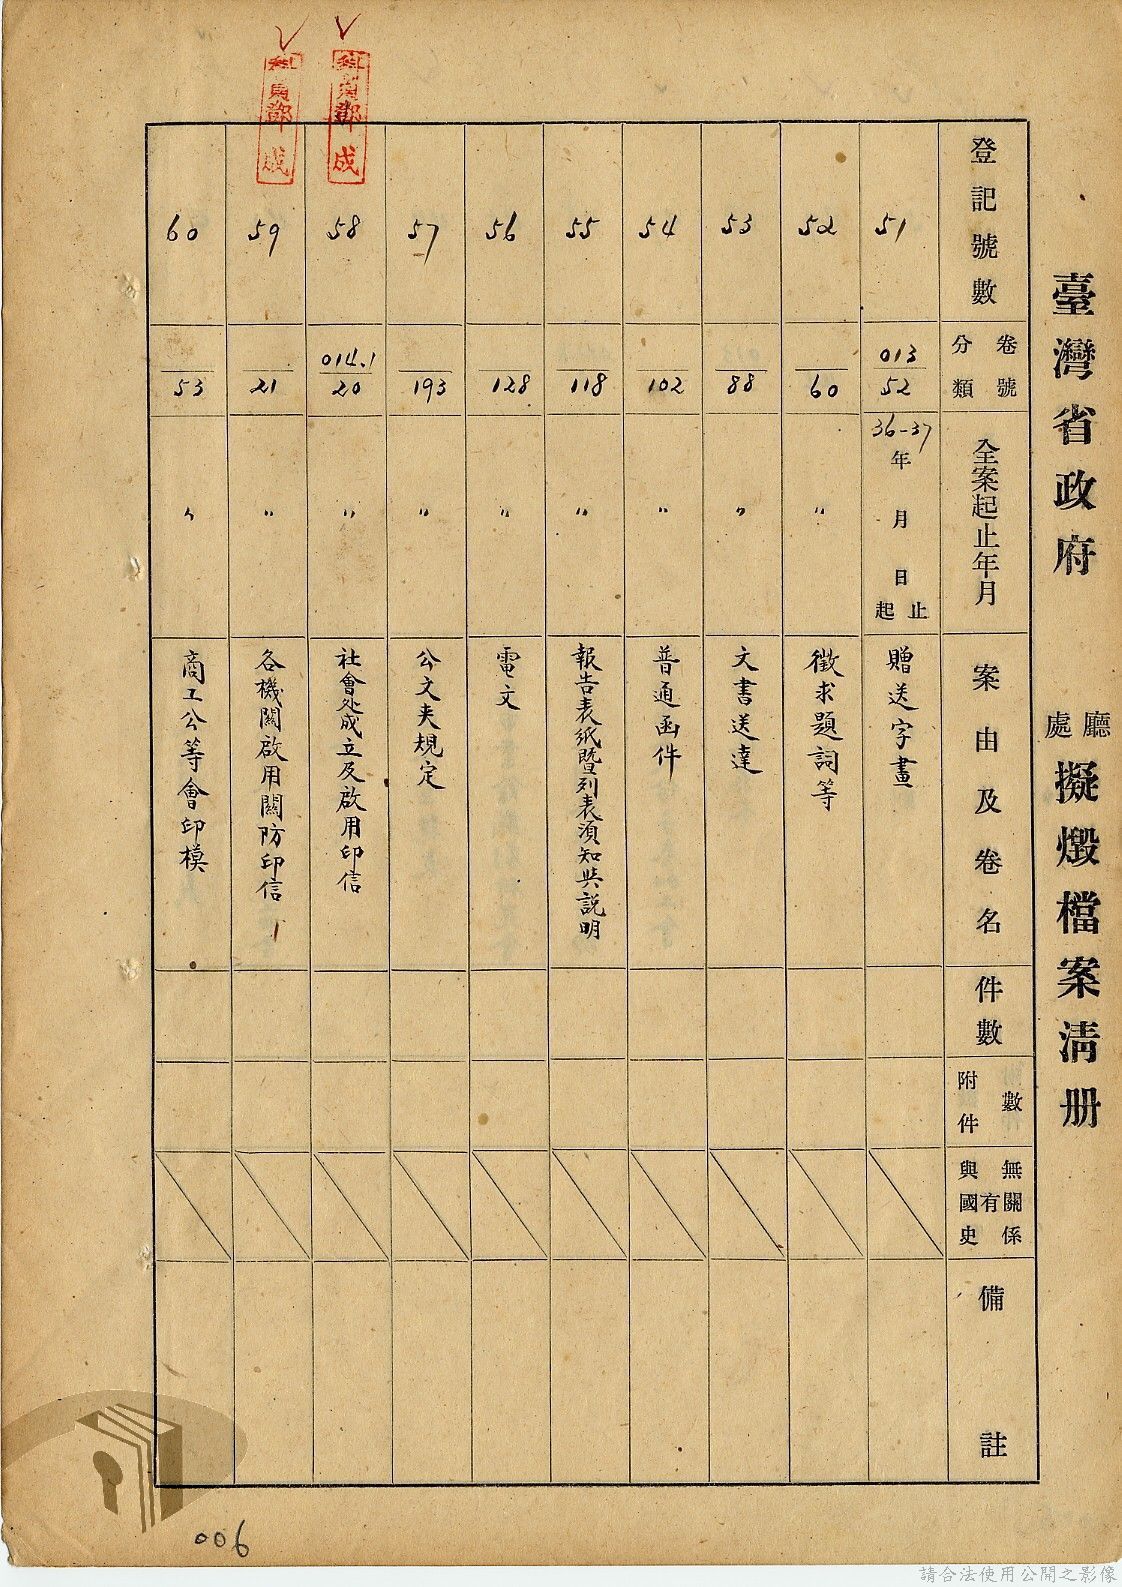 臺灣省政府 廳處擬燬檔案清册
登記號數
分類卷號
全案起止年月
案由及卷名
件數
附件數
與國史有無關係
備註
51
013
52
36-37
年 月 日
起止
贈送字畫
52
60
〃
徵求題詞等
53
88
〃
文書送達
54
102
〃
普通函件
55
118
〃
報告表紙暨列表須知與説明
56
128
〃
電文
57
193
〃
公文夹規定
58
014.1
20
〃
社會处成立及啟用印信
59
21
〃
各機關啟用關防印信
60
53
〃
商工公等會印模
鄧成
鄧成
006
請合法使用公開之影像